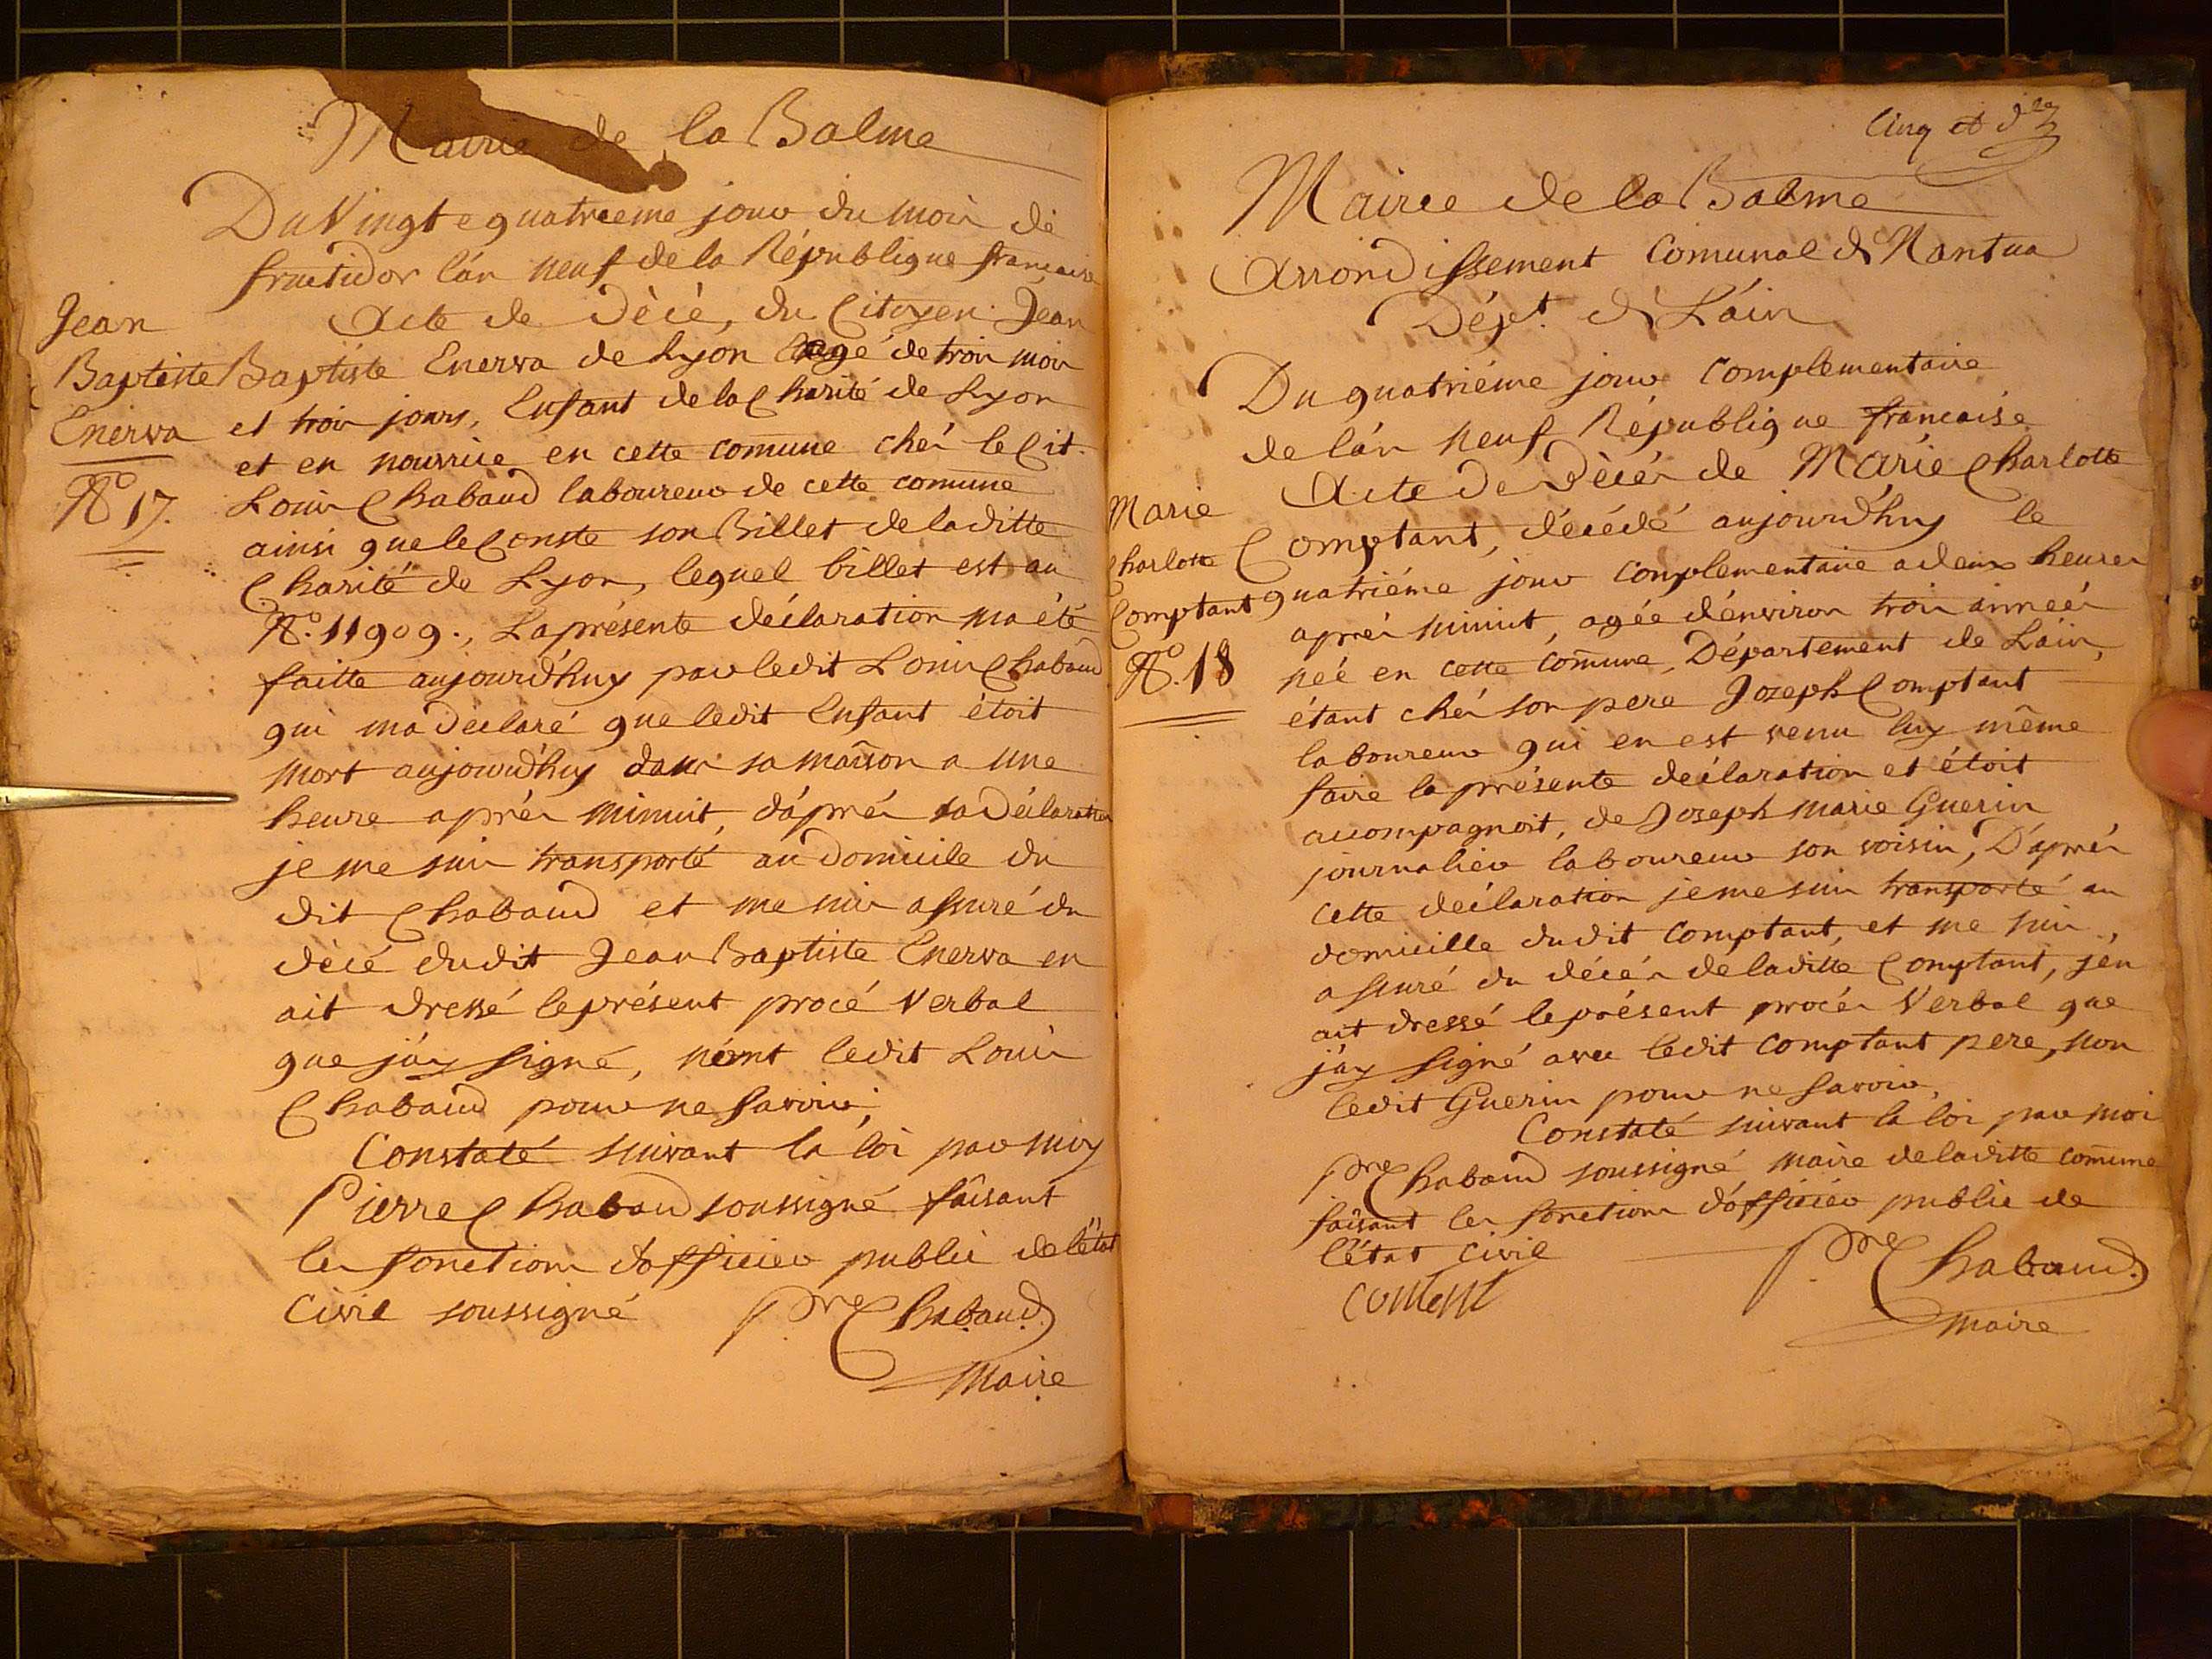 Mairie de la Balme
Du Vingt e quatrieme jour du mois de
fructidor l'an neuf de la République francaise
Acte de décè, du Citoyen Jean
Baptiste Enerva de Lyon agé de trois mois
et trois jours, Enfant de la Charité de Lyon
et en nourrice en cette comune chés le Cit.
Louis Chabaud laboureur de cette comune
ainsi que le Conste son Billet de laditte
Charité de Lyon, lequel billet est au
No. 11909., La présente déclaration ma été
faitte aujourd'huy par ledit Louis Chabaud
qui ma declaré que ledit Enfant étoit
mort aujourd'huy dans sa maison a une
heure après minuit, d'après sa déclaration
je me suis transporté au domicile du
dit Chabaud et me suis assuré du
décé dudit Jean Baptiste Enerva en
ait dressé le présent procé Verbal
que j'ay signé, non ledit Louis
Chabaud pour ne savoir,
Constaté suivant la loi par moy
Pierre Chabaud soussigné faisant
les fonctions d'officier public de l'état
Civil soussigné Pre Chabaud
Maire
Jean
Baptiste
Enerva
No 17.
Cinq et
Mairie de la Balme
Arrondissement Comunal de Nantua
Dépt. de L'ain
Du quatriéme jour Complementaire
de l'an neuf République francaise
Acte de décés de Marie Charlotte
Comptant, décédé aujourd'huy le
quatriéme jour Complementaire a deux heures
aprés minuit, agée d'environ trois années
neé en cette Comune, Département de L'ain,
étant chés son pere Joseph Comptant
laboureur qui en est venu luy même
faire la présente déclaration et étoit
accompagnoit, de Joseph Marie Guerin
journalier laboureur son voisin, D'aprés
cette déclaration je me suis transporté au
domicille dudit Comptant, et me suis
assuré du décés de laditte Comptant, j'en
ait dressé le présent procés Verbal que
j'ay signé avec ledit Comptant pere, non
ledit Guerin pour ne savoir,
Constaté suivant la loi par moi
Pre Chabaud soussigné maire de laditte comune
faisant les fonctions d'officier public de
l'état Civil Pre Chabaud
Maire
Marie
Charlotte
Comptant
No. 18